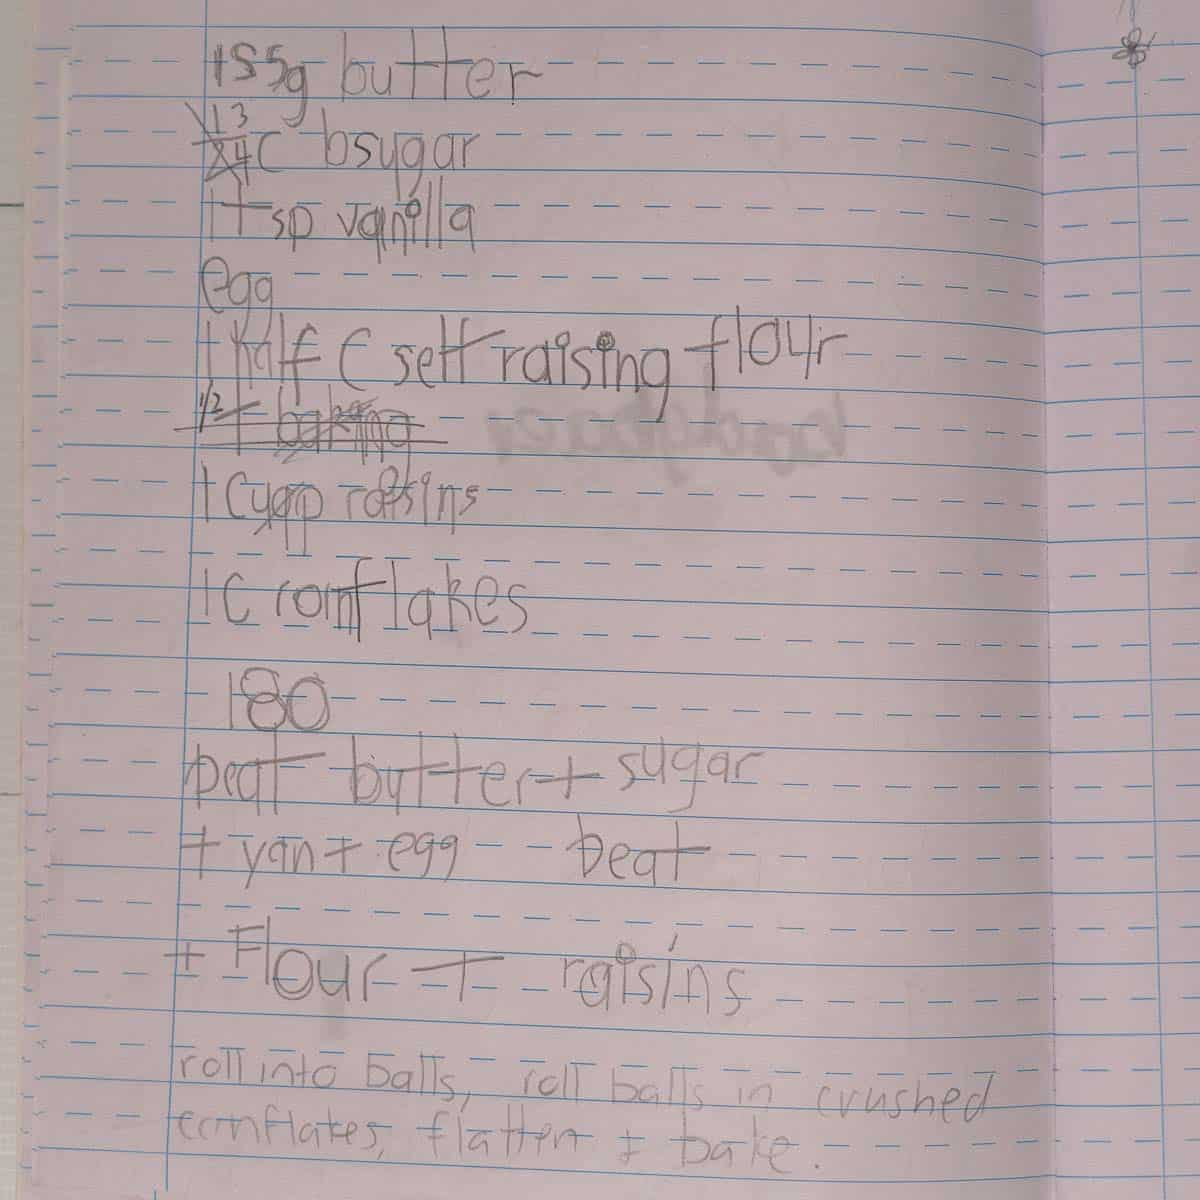 155g butter
3/4 C bsugar
1 tsp vanilla
egg
1 half C self raising flour
1/2 t baking
1 Cup raisins
1 C cornflakes
180
beat butter + sugar
+ van + egg beat
+ Flour + raisins
roll into balls, roll balls in crushed
cornflakes, flatten + bake.